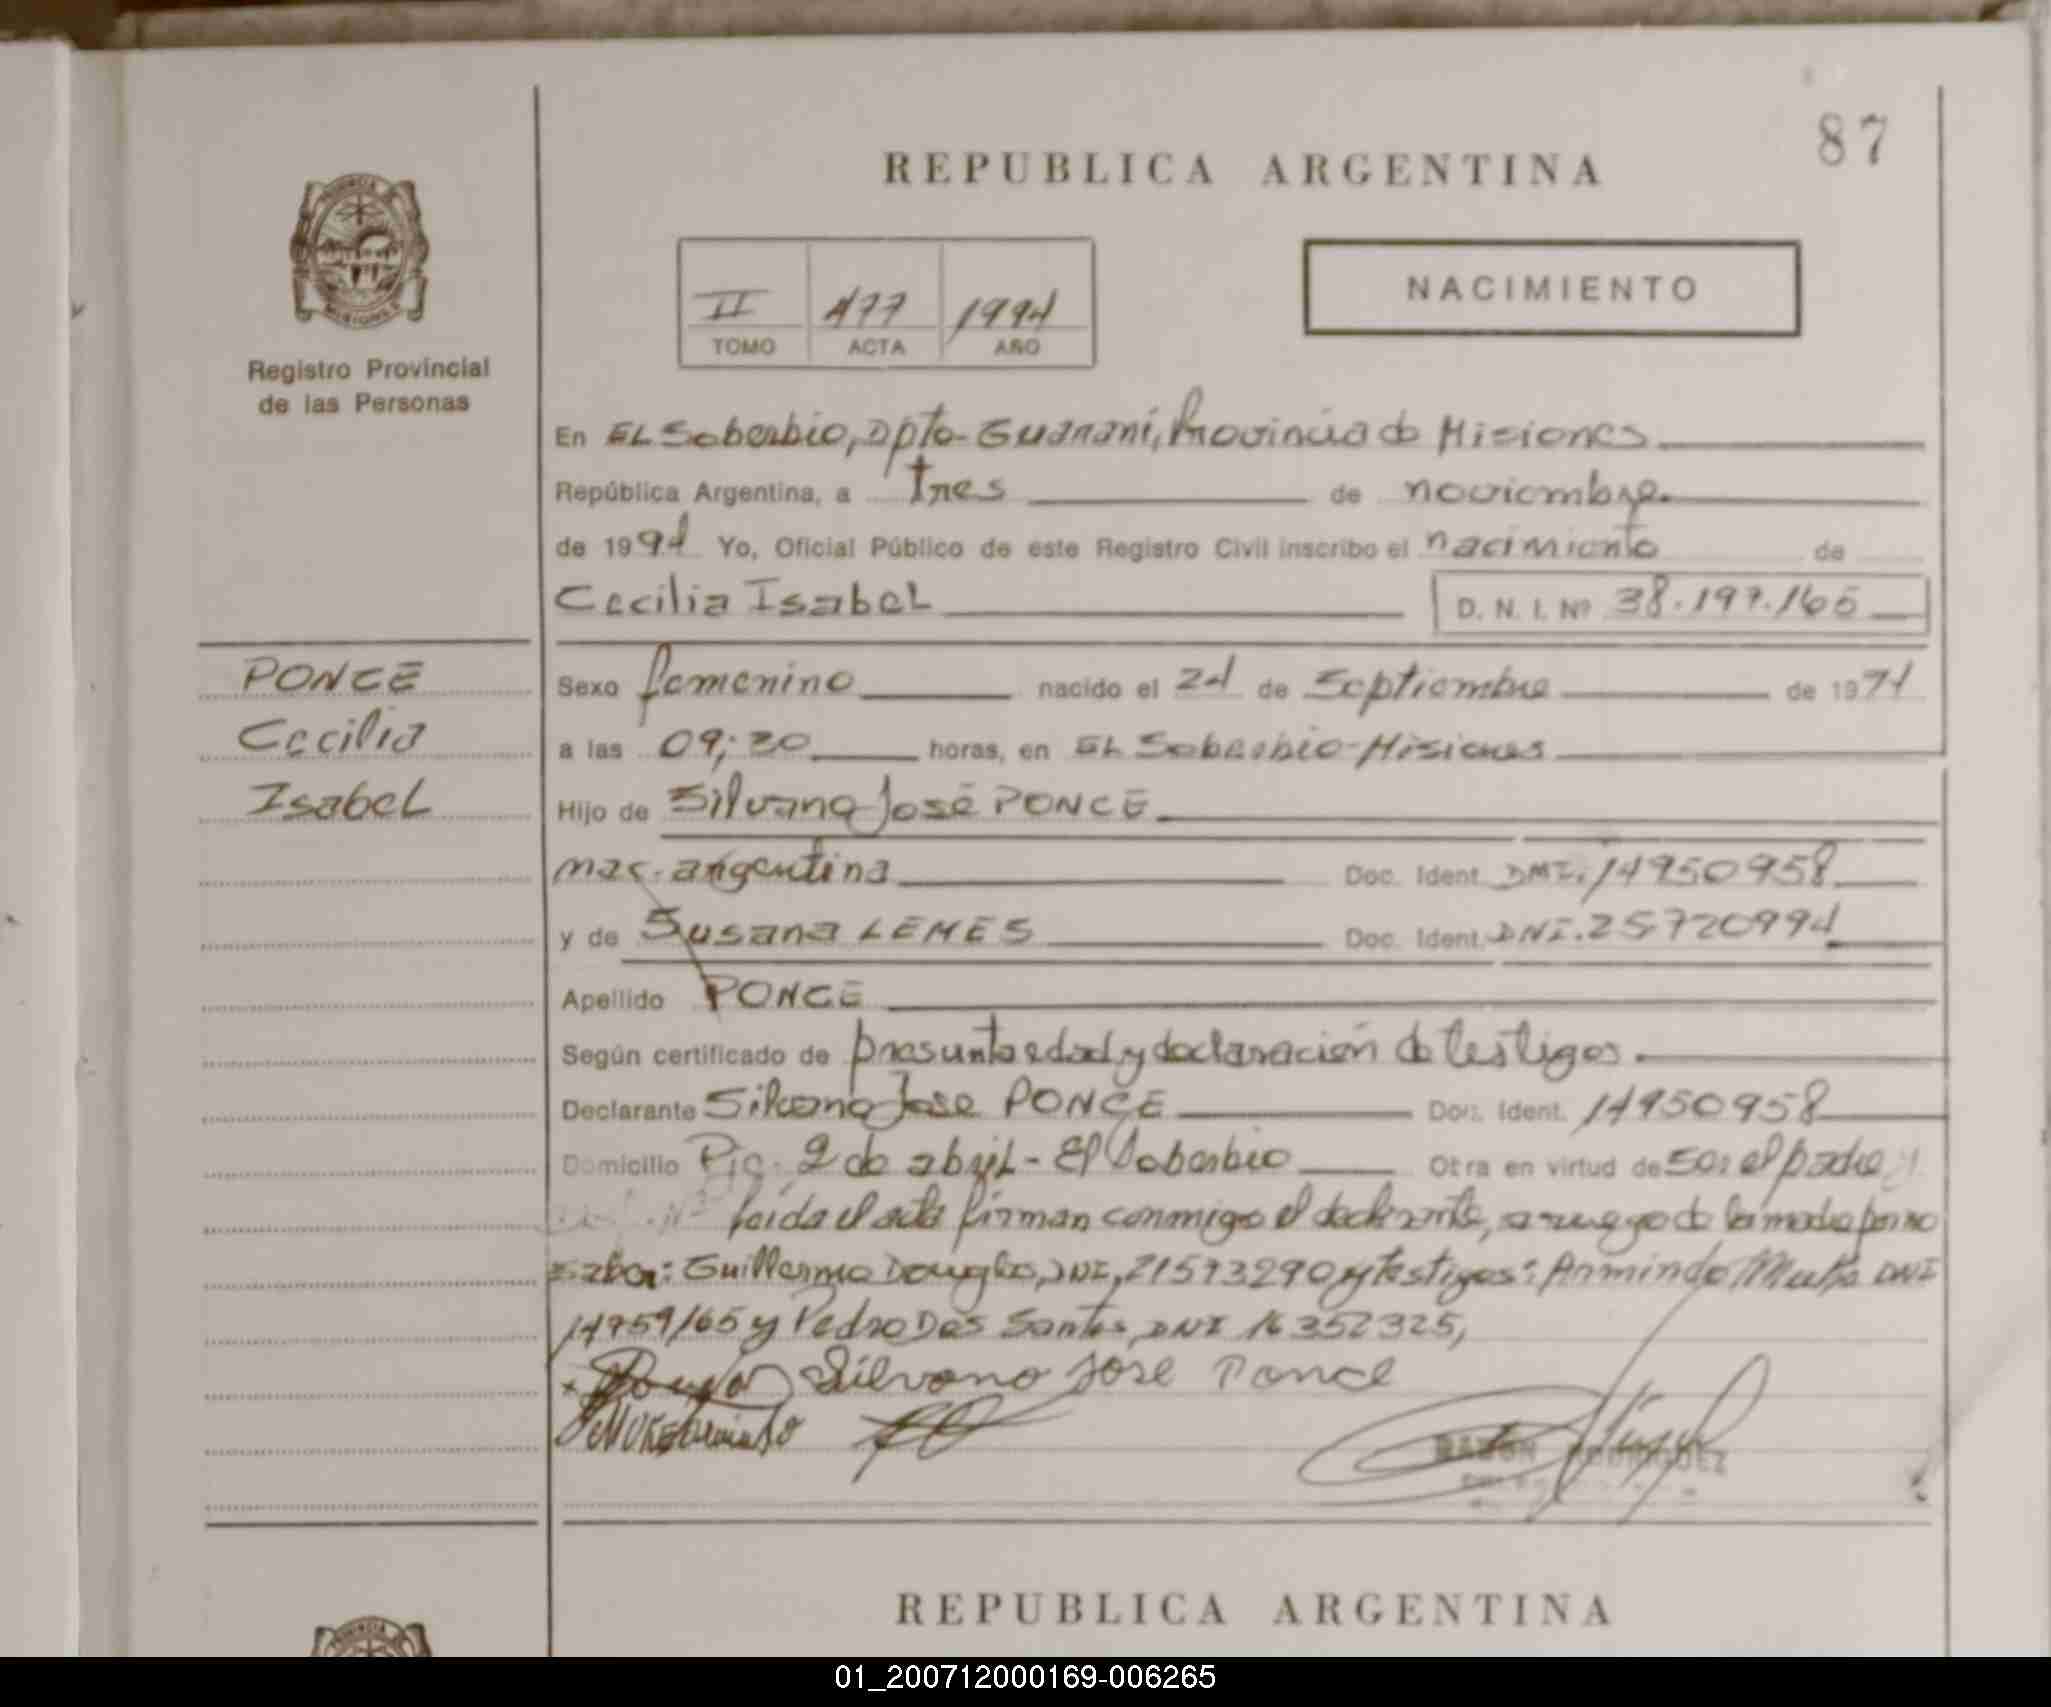 87
REPUBLICA ARGENTINA
PROVINCIA DE
MISIONES
Registro Provincial
de las Personas
II 477 1994
TOMO ACTA AÑO
NACIMIENTO
En EL Soberbio, Dpto- Guaraní, Provincia de Misiones
República Argentina, a tres de noviembre.
de 1994 Yo, Oficial Público de este Registro Civil inscribo el nacimiento de
Cecilia Isabel D. N. I. Nº 38.197.165
PONCE
Cecilia
Isabel
Sexo femenino nacido el 24 de Septiembre de 19
a las 09;30 horas, en EL Soberbio-Misiones
Hijo de Silvano José PONCE
nac. argentina Doc. Ident. DNI. 14950958
y de Susana LEMES Doc. Ident. DNI. 25720994
Apellido PONCE
Según certificado de presunta edad y declaración de testigos.
Declarante Silvano Jose PONCE Doc. Ident. 14950958
Domicilio Pic. 2 de abril - El Soberbio Otra en virtud de ser el padre
leída el acta firman conmigo el declarante, a ruego de la madre por no
saber: Guillermo Douglas, DNI, 21573290 y testigos: Armindo DNI
14959165 y Pedro Dos Santos, DNI 16352325,
Silvano Jose Ponce
RAMON RODRIGUEZ
REPUBLICA ARGENTINA
01_200712000169-006265